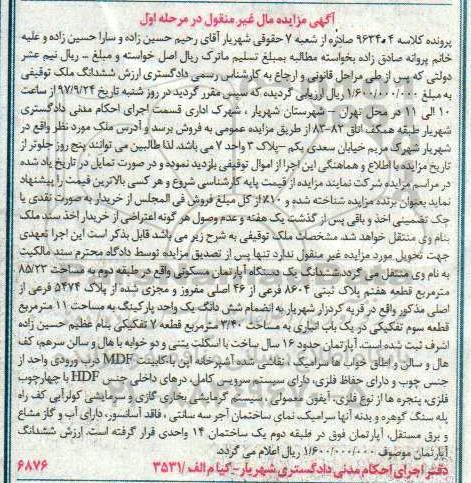 آگهی مزایده مال غیر منقول در مرحله اول
پرونده کلاسه ۹۶۳۴۰۴ صادره از شعبه ۷ حقوقی شهریار آقای رحیم حسین زاده و سارا حسین زاده و علیه
خانم پروانه صادق زاده بخواسته مطالبه بمبلغ تسلیم ماترک ریال اصل خواسته و مبلغ - ریال نیم عشر
دولتی که پس از طی مراحل قانونی و ارجاع به کارشناس رسمی دادگستری ارزش ششدانگ ملک توقیفی
به مبلغ ۱/۶۰۰/۰۰۰/۰۰۰ ریال ارزیابی گردیده که سپس مقرر گردید در روز شنبه تاریخ ۹۷/۹/۲۴ از ساعت
۱۰ الی ۱۱ در محل تهران - شهرستان شهریار، شهرک اداری قسمت اجرای احکام مدنی دادگستری
شهریار طبقه همکف اتاق ۸۲-۸۳ از طریق مزایده عمومی به فروش برسد و آدرس ملک مورد نظر واقع در
شهریار شهرک مریم خیابان سعدی یکم -پلاک ۳ واحد ۷ می باشد. لذا طالبین می توانند پنج روز جلوتر از
تاریخ مزایده با اطلاع و هماهنگی این اجرا از اموال توقیفی بازدید نموده و در صورت تمایل در تاریخ یاد شده
در مراسم مزایده شرکت نمایند مزایده از قیمت پایه کارشناسی شروع و هر کسی بالاترین قیمت را پیشنهاد
نماید بعنوان برنده مزایده شناخته شده و ۱۰٪ از کل مبلغ فروش فی المجلس از خریدار به صورت نقدی یا
چک تضمینی اخذ و باقی پس از گذشت یک هفته و عدم وصول هر گونه اعتراضی از خریدار اخذ سند ملک
بنام وی منتقل خواهد شد. مشخصات ملک توقیفی به شرح زیر می باشد. قابل بذکر است این اجرا تعهدی
جهت تحویل مورد مزایده غیر منقول ندارد تنها پس از تصدیق مزایده توسط دادگاه محترم سند مالکیت
به نام وی منتقل می گردد.ششدانگ یک دستگاه آپارتمان مسکونی واقع در طبقه دوم به مساحت ۸۵/۲۲
مترمربع قطعه هفتم پلاک ثبتی ۸۶۰۴ فرعی از ۴۶ اصلی مفروز و مجزی شده از پلاک ۵۴۷۴ فرعی از
اصلی مذکور واقع در قریه کردزار شهریار به انضمام شش دانگ یک واحد پارکینگ به مساحت ۱۱ مترمربع
قطعه سوم تفکیکی در یک باب انباری به مساحت ۳/۴۰ مترمربع قطعه ۷ تفکیکی بنام عظیم حسین زاده
اشرف ثبت شده است. آپارتمان حدود ۱۶ سال ساخت با اسکلت بتنی و دو خوابه با هال و سالن سرهم، کف
هال و سالن و اطاق خواب ها سرامیک ، نقاشی شده آشپزخانه اپن با کابینت MDF درب ورودی واحد از
جنس چوب و دارای حفاظ فلزی، دارای سیستم سرویس کامل، درهای داخلی جنس HDF با چهارچوب
فلزی، پنجره ها از نوع فلزی، آیفون معمولی، سیستم گرمایشی بخاری گازی و سرمایشی کولرآبی کف راه
پله سنگ گوهره و بدنه آنها سرامیک، نمای ساختمان آجر سه سانتی ، فاقد آسانسور، دارای آب و گاز مشاع
و برق مستقل، آپارتمان فوق در طبقه دوم یک ساختمان ۱۴ واحدی قرار گرفته است. ارزش ششدانگ
آپارتمان موصوف ۱/۶۰۰/۰۰۰/۰۰۰ ریال اعلام می گردد.
دفتر اجرای احکام مدنی دادگستری شهریار- کیا م الف /۳۵۳۱ ۶۸۷۶